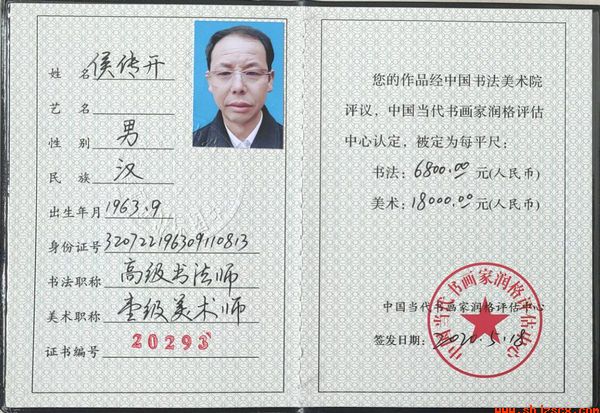 姓名 侯传开
艺名
性别 男
民族 汉
出生年月 1963.9
身份证号 320722196309110813
书法职称 高级书法师
美术职称 壹级美术师
证书编号 20293
您的作品经中国书法美术院
评议，中国当代书画家润格评估
中心认定，被定为每平尺：
书法：6800.00元(人民币)
美术：18000.00元(人民币)
中国当代书画家润格评估中心
签发日期：2020.5.18
中国当代书画家润格评估中心